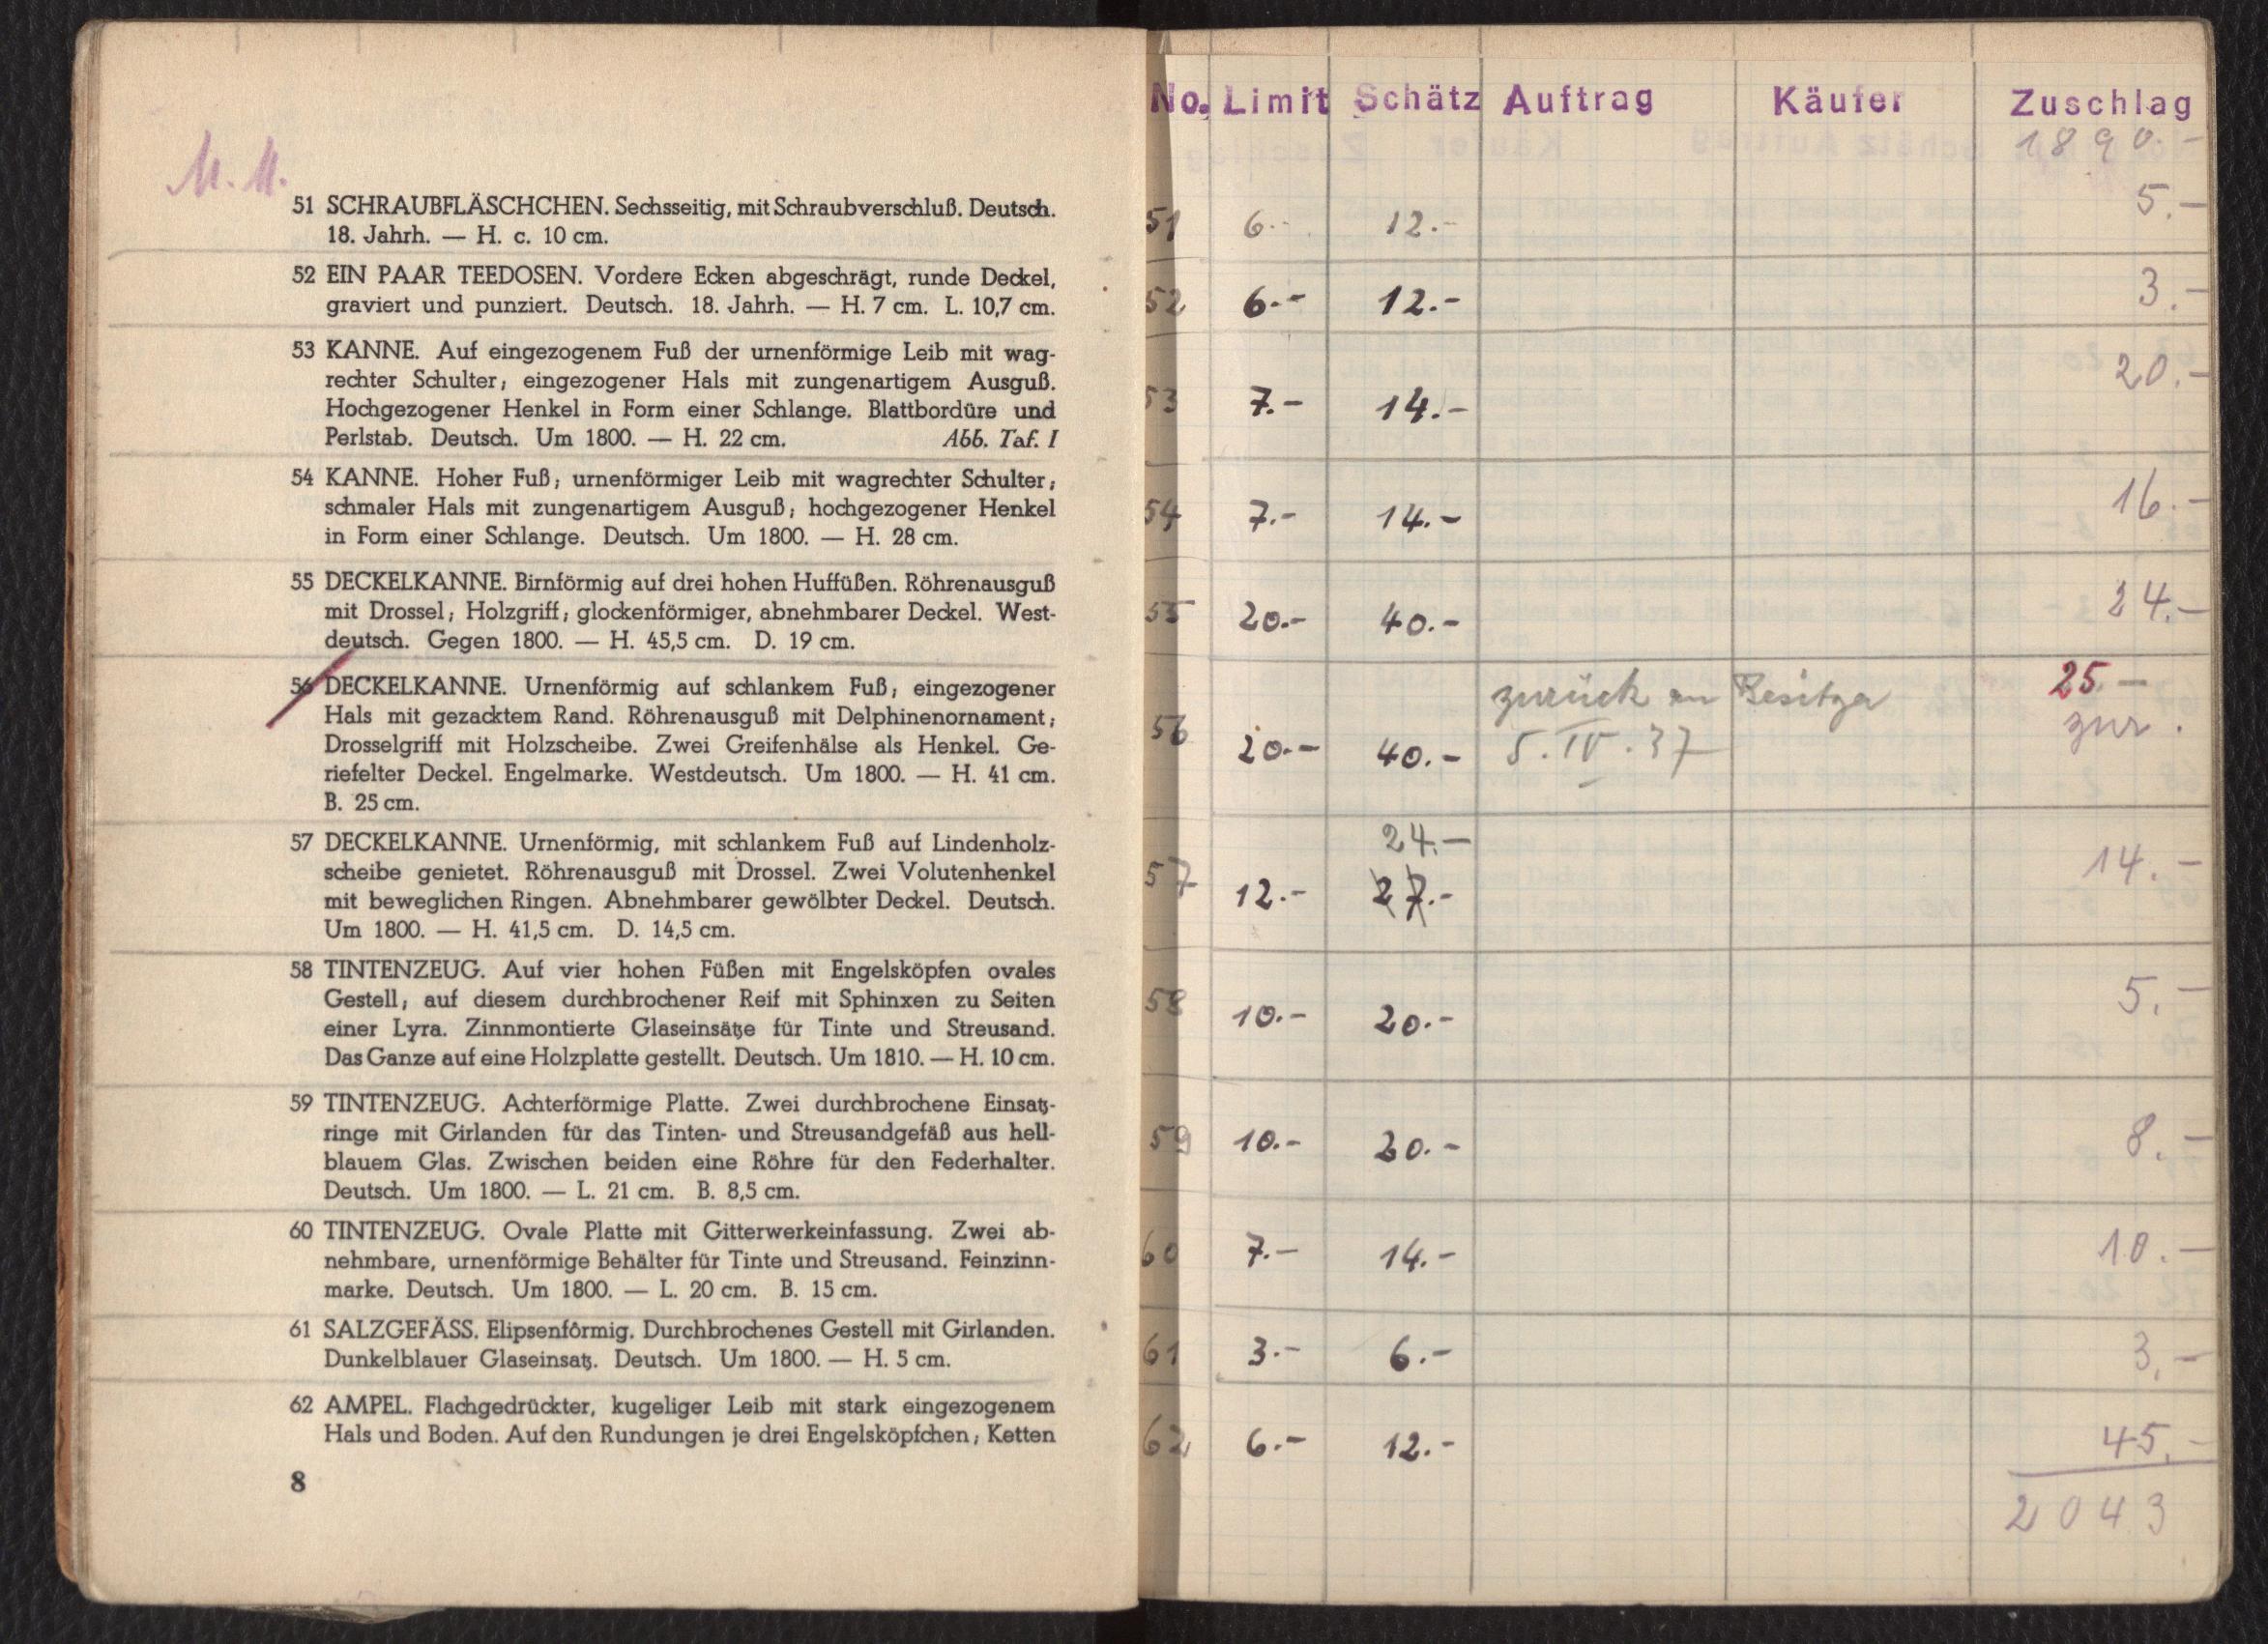 M. M.
51 SCHRAUBFLÄSCHCHEN. Sechsseitig, mit Schraubverschluß. Deutsch.
18. Jahrh. — H. c. 10 cm.
52 EIN PAAR TEEDOSEN. Vordere Ecken abgeschrägt, runde Deckel,
graviert und punziert. Deutsch. 18. Jahrh. — H. 7 cm. L. 10,7 cm.
53 KANNE. Auf eingezogenem Fuß der urnenförmige Leib mit wag-
rechter Schulter; eingezogener Hals mit zungenartigem Ausguß.
Hochgezogener Henkel in Form einer Schlange. Blattbordüre und
Perlstab. Deutsch. Um 1800. — H. 22 cm. Abb. Taf. I
54 KANNE. Hoher Fuß; urnenförmiger Leib mit wagrechter Schulter;
schmaler Hals mit zungenartigem Ausguß; hochgezogener Henkel
in Form einer Schlange. Deutsch. Um 1800. — H. 28 cm.
55 DECKELKANNE. Birnförmig auf drei hohen Huffüßen. Röhrenausguß
mit Drossel; Holzgriff; glockenförmiger, abnehmbarer Deckel. West-
deutsch. Gegen 1800. — H. 45,5 cm. D. 19 cm.
56 DECKELKANNE. Urnenförmig auf schlankem Fuß; eingezogener
Hals mit gezacktem Rand. Röhrenausguß mit Delphinenornament;
Drosselgriff mit Holzscheibe. Zwei Greifenhälse als Henkel. Ge-
riefelter Deckel. Engelmarke. Westdeutsch. Um 1800. — H. 41 cm.
B. 25 cm.
57 DECKELKANNE. Urnenförmig, mit schlankem Fuß auf Lindenholz-
scheibe genietet. Röhrenausguß mit Drossel. Zwei Volutenhenkel
mit beweglichen Ringen. Abnehmbarer gewölbter Deckel. Deutsch.
Um 1800. — H. 41,5 cm. D. 14,5 cm.
58 TINTENZEUG. Auf vier hohen Füßen mit Engelsköpfen ovales
Gestell; auf diesem durchbrochener Reif mit Sphinxen zu Seiten
einer Lyra. Zinnmontierte Glaseinsätze für Tinte und Streusand.
Das Ganze auf eine Holzplatte gestellt. Deutsch. Um 1810. — H. 10 cm.
59 TINTENZEUG. Achterförmige Platte. Zwei durchbrochene Einsatz-
ringe mit Girlanden für das Tinten- und Streusandgefäß aus hell-
blauem Glas. Zwischen beiden eine Röhre für den Federhalter.
Deutsch. Um 1800. — L. 21 cm. B. 8,5 cm.
60 TINTENZEUG. Ovale Platte mit Gitterwerkeinfassung. Zwei ab-
nehmbare, urnenförmige Behälter für Tinte und Streusand. Feinzinn-
marke. Deutsch. Um 1800. — L. 20 cm. B. 15 cm.
61 SALZGEFÄSS. Elipsenförmig. Durchbrochenes Gestell mit Girlanden.
Dunkelblauer Glaseinsatz. Deutsch. Um 1800. — H. 5 cm.
62 AMPEL. Flachgedrückter, kugeliger Leib mit stark eingezogenem
Hals und Boden. Auf den Rundungen je drei Engelsköpfchen; Ketten
8
No. Limit Schätz Auftrag Käufer Zuschlag
1890.-
51 6.- 12.- 5.-
52 6.- 12.- 3.-
53 7.- 14.- 20.-
54 7.- 14.- 16.-
55 20.- 40.- 24.-
zurück an Besitzer 25.-
56 20.- 40.- 5.IV.37 zur.
24.-
57 12.- 27.- 14.-
58 10.- 20.- 5.-
59 10.- 20.- 8.-
60 7.- 14.- 10.-
61 3.- 6.- 3.-
62 6.- 12.- 45.-
2043